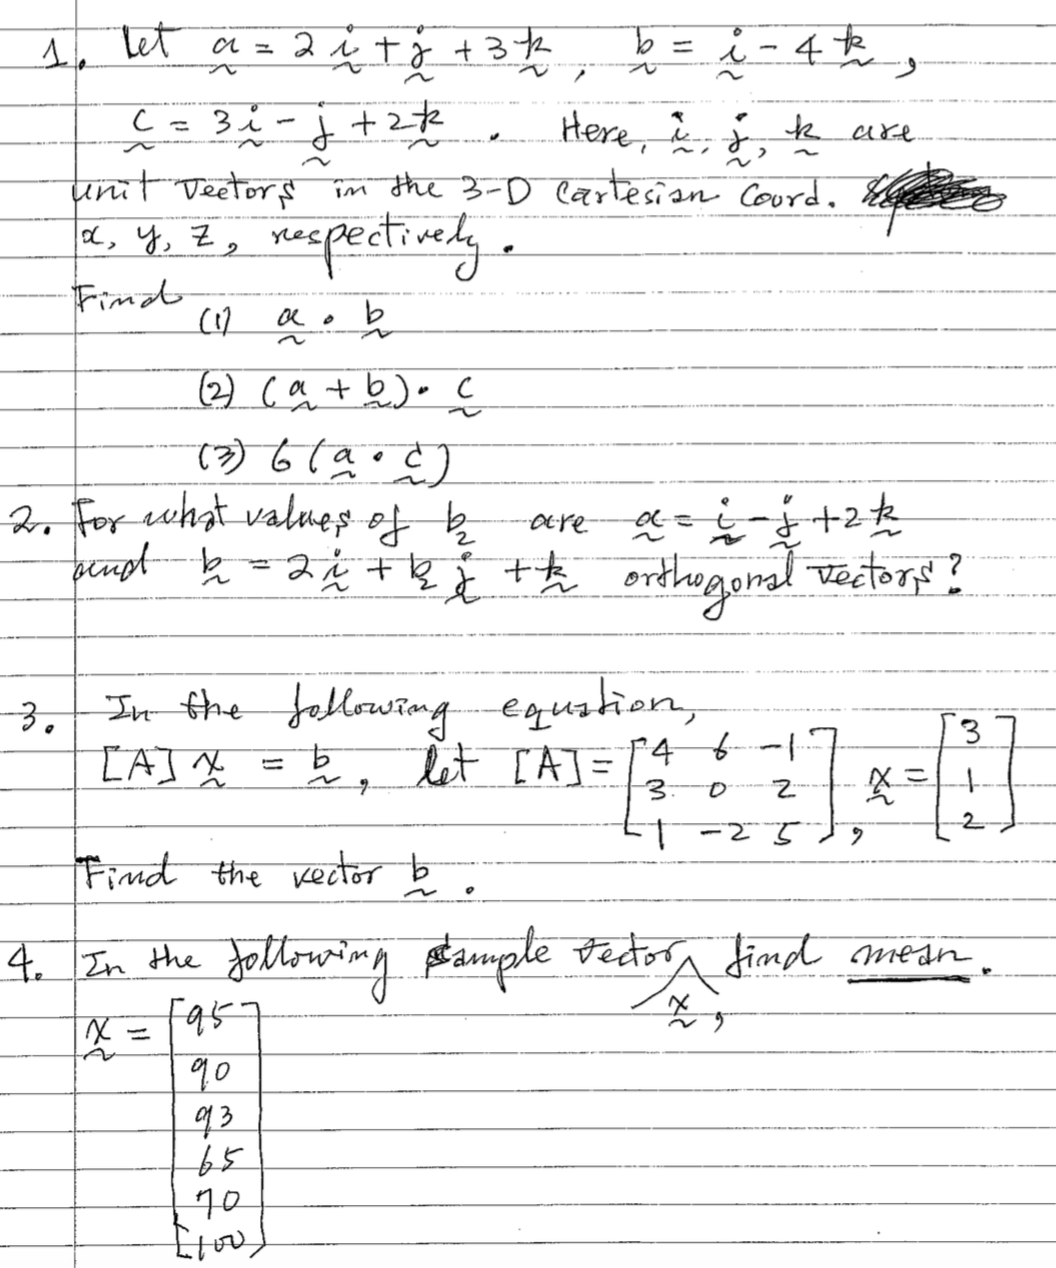 1. Let a = 2i + j + 3k, b = i - 4k,
c = 3i - j + 2k. Here, i, j, k are
unit vectors in the 3-D Cartesian Coord.
x, y, z, respectively.
Find
(1) a · b
(2) (a + b) · c
(3) 6(a · c)
2. For what values of b₂ are a = i - j + 2k
and b = 2i + b₂ j + k orthogonal vectors?
3. In the following equation,
[A] x = b, let [A] = [4 6 -1; 3 0 2; 1 -2 5], x = [3; 1; 2]
Find the vector b.
4. In the following sample vector x, find mean.
x = [95
90
93
65
70
100]